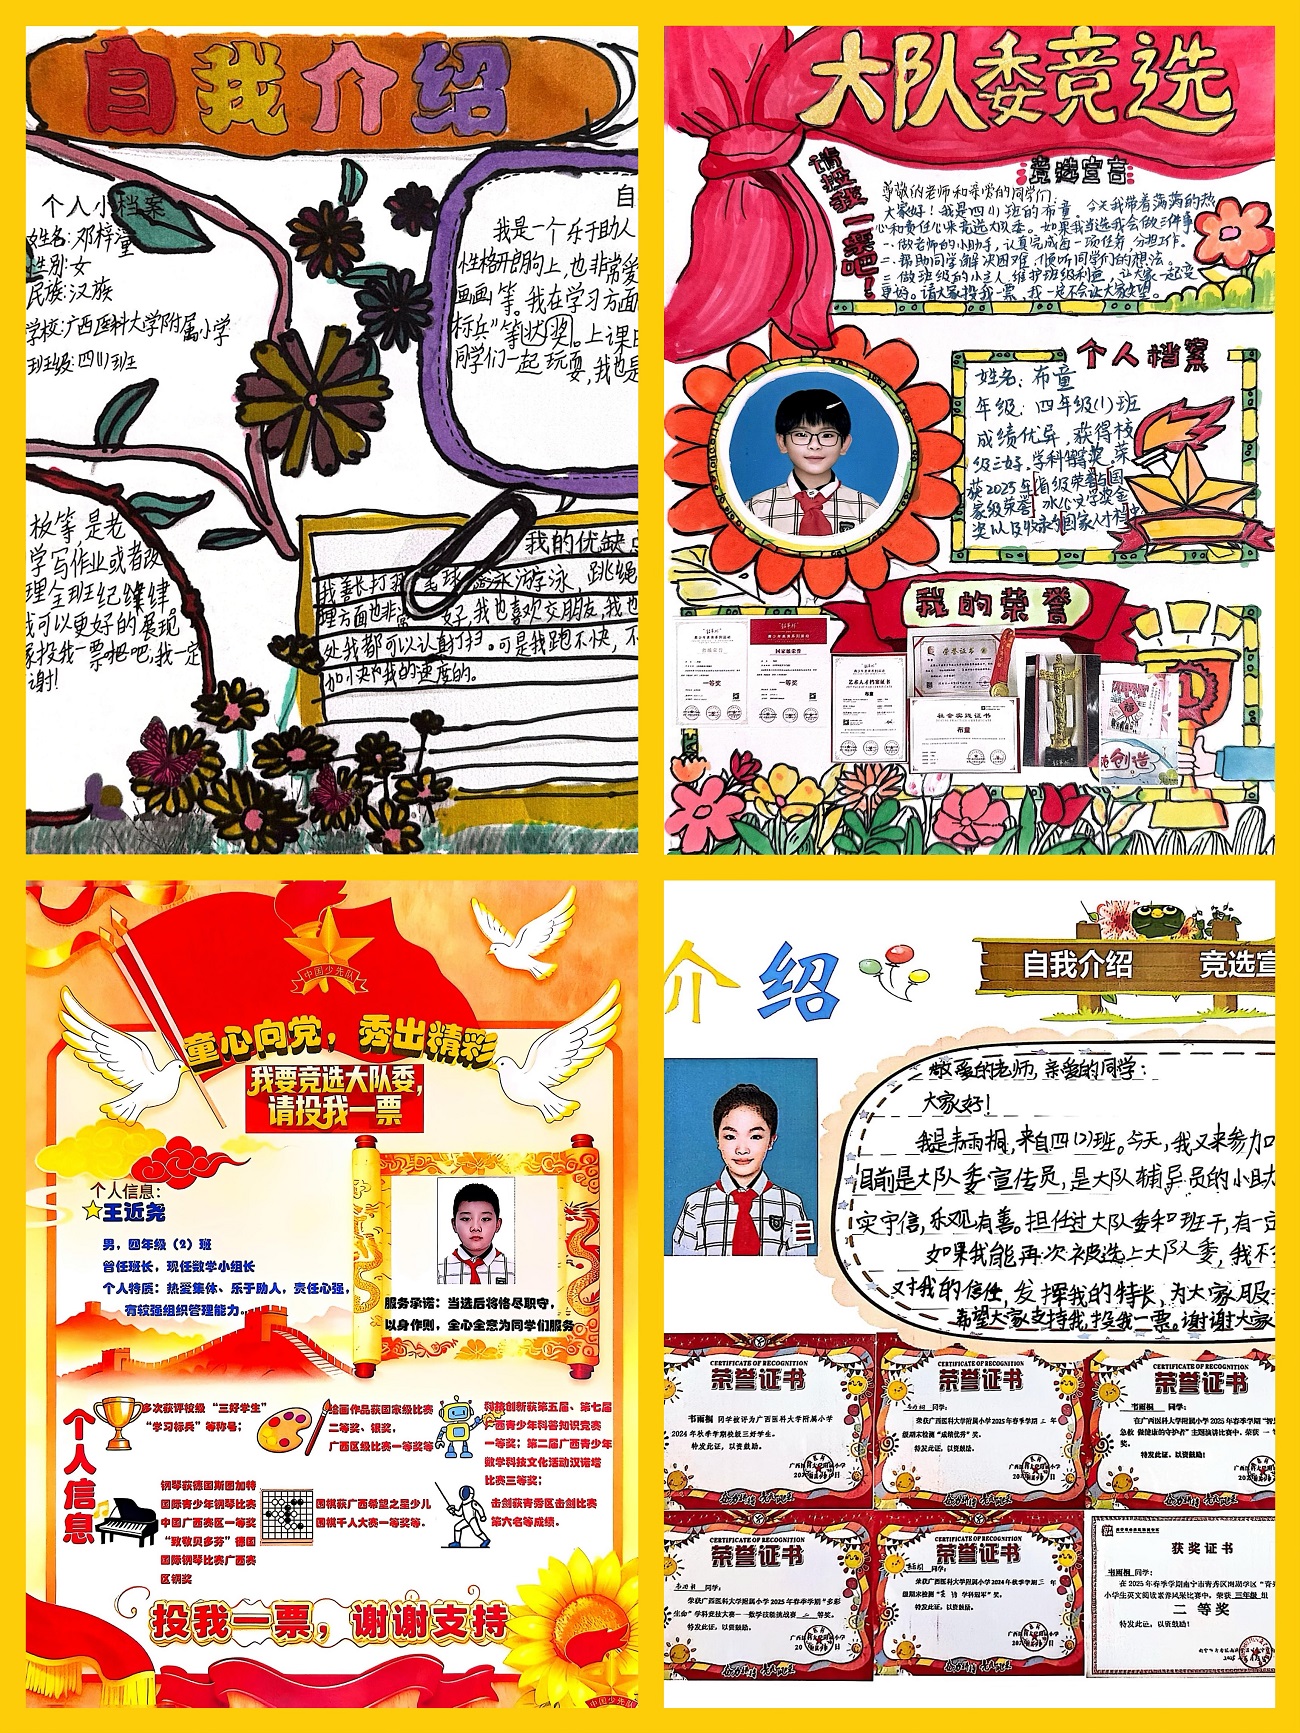 自我介绍
个人小档案
姓名:邓梓潼
性别:女
民族:汉族
学校:广西医科大学附属小学
班级:四(1)班
自
我是一个乐于助人
性格开朗向上,也非常爱
画画等。我在学习方面
标兵”等状奖。上课
同学们一起玩耍,我也是
板等,是老
学写作业或者改
理全班纪律
我可以更好的展现
家投我一票吧吧,我一定
谢!
我的优缺点
我善长打羽毛球 游泳 跳绳
理方面也非常 好,我也喜欢交朋友,我也
处我都可以认真打扫。可是我跑不快,不
加小快我的速度的。
大队委竞选
请投我一票吧!
竞选宣言
尊敬的老师和亲爱的同学们:
大家好!我是四(1)班的布童。今天我带着满满的热
心和责任心来竞选大队委。如果我当选我会做三件事
一.做老师的小助手,认真完成每一项任务,分担工作。
二.帮助同学解决困难,倾听同学们的想法。
三.做班级的小主人,维护班级利益,让大家一起变
更好。请大家投我一票,我一定不会让大家失望。
个人档案
姓名:布童
年级:四年级(1)班
成绩优异,获得校
级三好.学科 奖.荣
获2025年省级荣誉与国
家级荣誉 水心文学奖金
奖以及收录国家人才档
我的荣誉
国家级荣誉
一等奖
一等奖
艺术人才档案证书
布童
荣誉证书
社会实践证书
布童
创造
中国少先队
童心向党,秀出精彩
我要竞选大队委,
请投我一票
个人信息:
王近尧
男,四年级(2)班
曾任班长,现任数学小组长
个人特质:热爱集体、乐于助人,责任心强,
有较强组织管理能力。
服务承诺:当选后将恪尽职守,
以身作则,全心全意为同学们服务
个人信息
多次获评校级“三好学生”
“学习标兵”等称号;
绘画作品获国家级比赛
二等奖、银奖,
广西区级比赛一等奖等
科技创新获第五届、第七届
广西青少年科普知识竞赛
一等奖;第二届广西青少年
数学科技文化活动汉诺塔
比赛三等奖;
钢琴获德国斯图加特
国际青少年钢琴比赛
中国广西赛区一等奖
“致敬贝多芬”德国
国际钢琴比赛广西赛
区铜奖
围棋获广西希望之星少儿
围棋千人大赛一等奖等。
击剑获青秀区击剑比赛
第六名等成绩。
投我一票,谢谢支持
中国少先队
介绍
自我介绍 竞选宣
敬爱的老师,亲爱的同学:
大家好!
我是韦雨桐,来自四(2)班。今天,我又来参加
目前是大队委宣传员,是大队辅导员的小助
实守信,乐观有善。担任过大队委和班干,有一定
如果我能再次被选上大队委,我不
又对我的信任,发挥我的特长,为大家服务
希望大家支持我,投我一票。谢谢大家
CERTIFICATE OF RECOGNITION
荣誉证书
韦雨桐 同学被评为广西医科大学附属小学
2024年秋季学期校级三好学生。
特发此证,以资鼓励。
CERTIFICATE OF RECOGNITION
荣誉证书
韦雨桐 同学:
荣获广西医科大学附属小学2025年春季学期 三 年
级期末检测“成绩优秀”奖。
特发此证,以资鼓励!
CERTIFICATE OF RECOGNITION
荣誉证书
韦雨桐 同学:
在广西医科大学附属小学2025年春季学期“智
急救 做健康的守护者”主题演讲比赛中,荣获 一
奖。
特发此证,以资鼓励!
CERTIFICATE OF RECOGNITION
荣誉证书
韦雨桐 同学:
荣获广西医科大学附属小学2025年春季学期“多彩
生命”学科竞技大赛—数学技能挑战赛 二 等奖。
特发此证,以资鼓励。
CERTIFICATE OF RECOGNITION
荣誉证书
韦雨桐 同学:
荣获广西医科大学附属小学2024年秋季学期 三 年
级期末检测“英语 学科冠军”奖。
特发此证,以资鼓励!
获奖证书
韦雨桐 同学:
在2025年春季学期南宁市青秀区
小学生英文阅读素养成果比赛中,荣获 三年级 组
二 等奖
特发此证,以资鼓励!